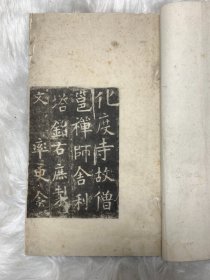 化度寺故僧
邕禪師舍利
塔銘右庶製
文率更令